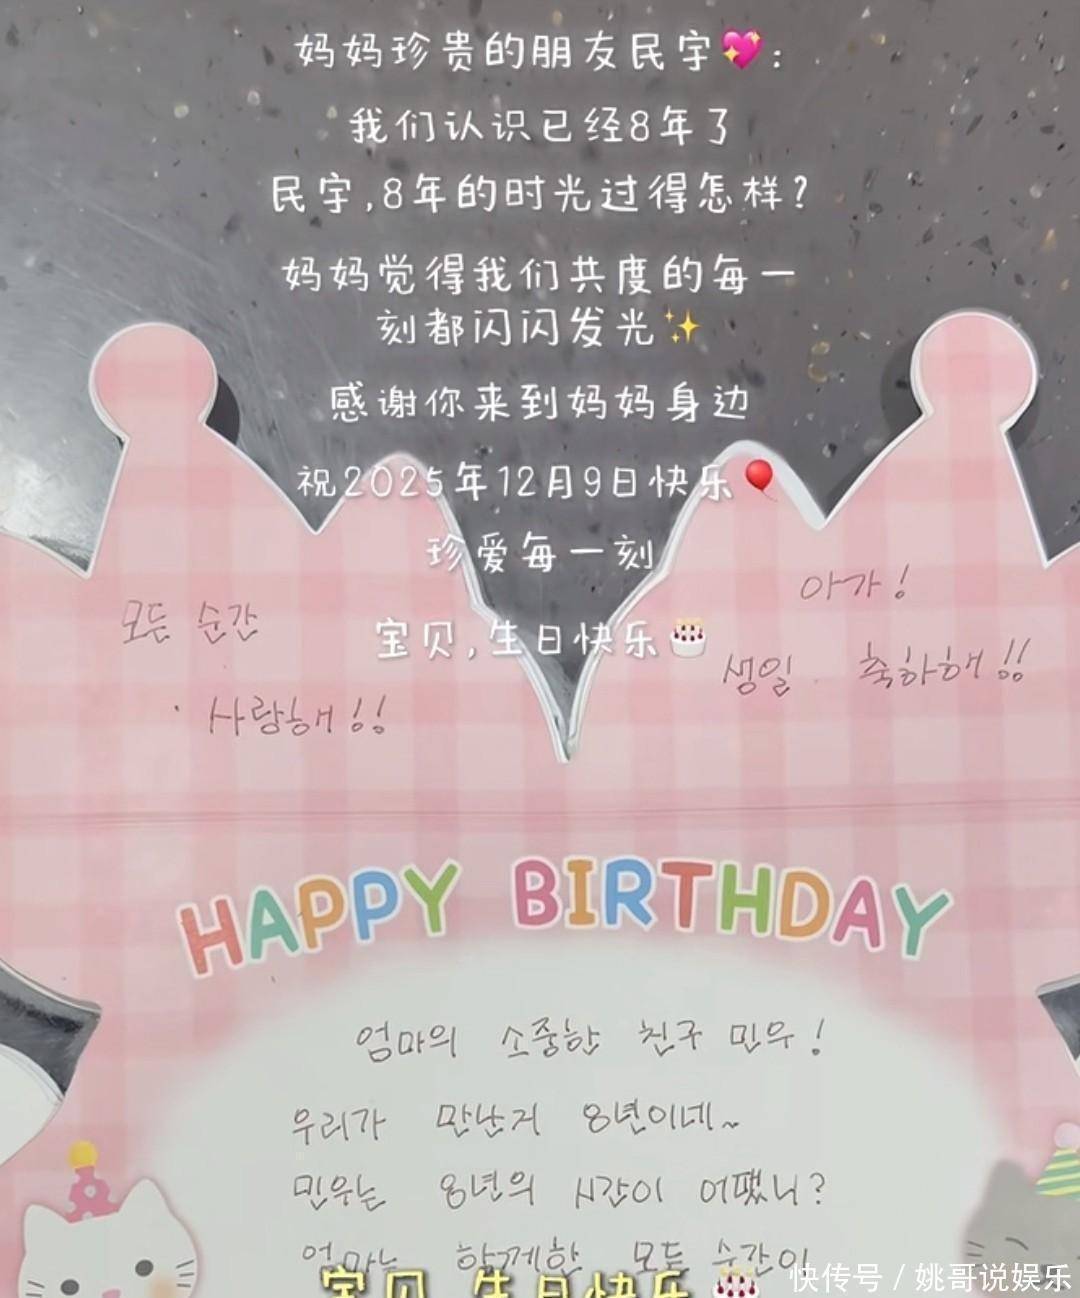 妈妈珍贵的朋友民宇💖:
我们认识已经8年了
民宇,8年的时光过得怎样?
妈妈觉得我们共度的每一
刻都闪闪发光✨
感谢你来到妈妈身边
祝2025年12月9日快乐🎈
珍爱每一刻
宝贝,生日快乐🎂
모든 순간
사랑해!!
아가!
생일 축하해!!
HAPPY BIRTHDAY
엄마의 소중한 친구 민우!
우리가 만난지 8년이네~
민우는 8년의 시간이 어땠니?
엄마는 함께한 모든 순간이
宝贝,生日快乐🎂
快传号/姚哥说娱乐